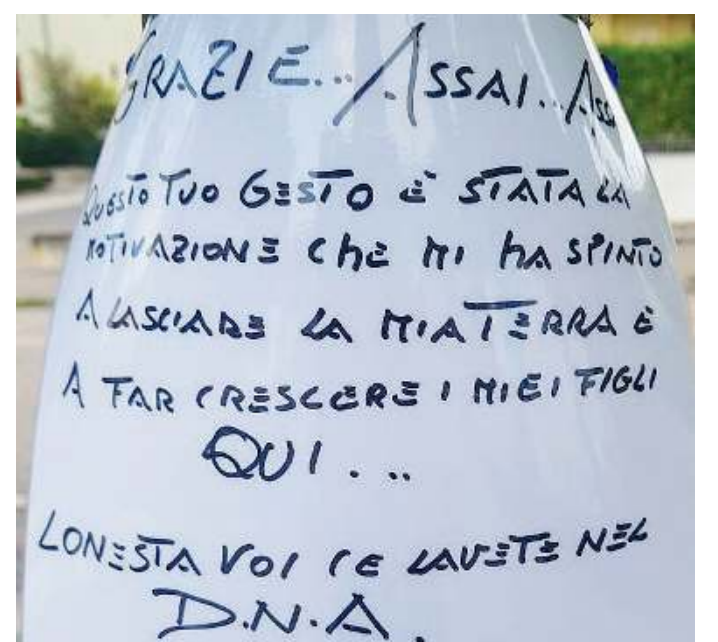 GRAZIE... ASSAI.. ASSAI
QUESTO TUO GESTO È STATA LA
MOTIVAZIONE ChE MI hA SPINTO
A LASCIARE LA MIA TERRA E
A FAR CRESCERE I MIEI FIGLI
QUI...
LONESTA VOI CE LAVETE NEL
D.N.A.